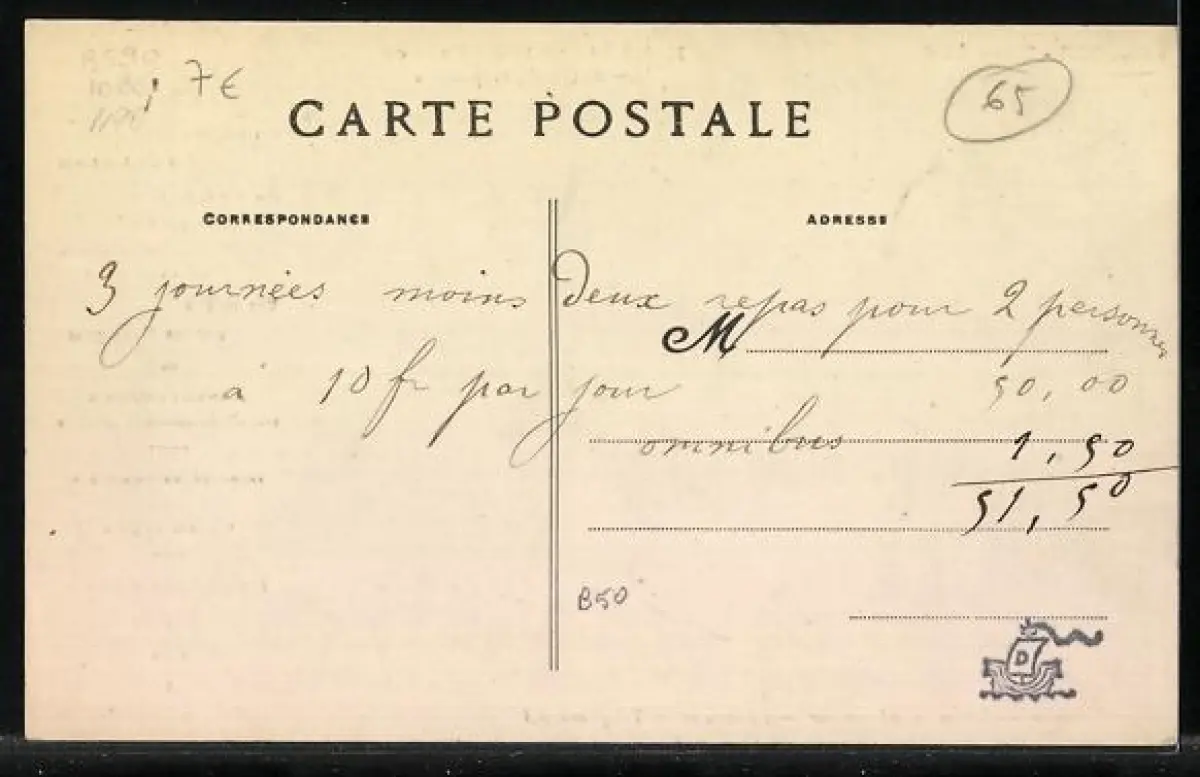 7 €
65
CARTE POSTALE
CORRESPONDANCE
ADRESSE
3 journées moins deux repas pour 2 personnes
M
à 10 fr par jour 50,00
omnibus 1,50
51,50
B50
D